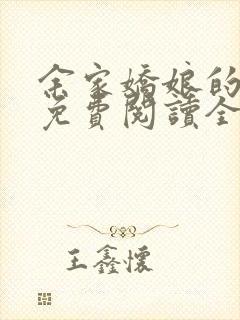 余家嬌娘的
免費閱讀全
王鑫懷